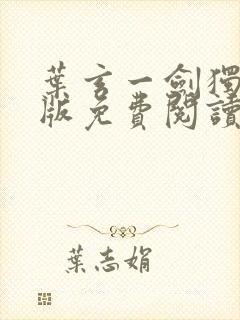 葉玄一劍獨
版免費閱讀
葉志娟